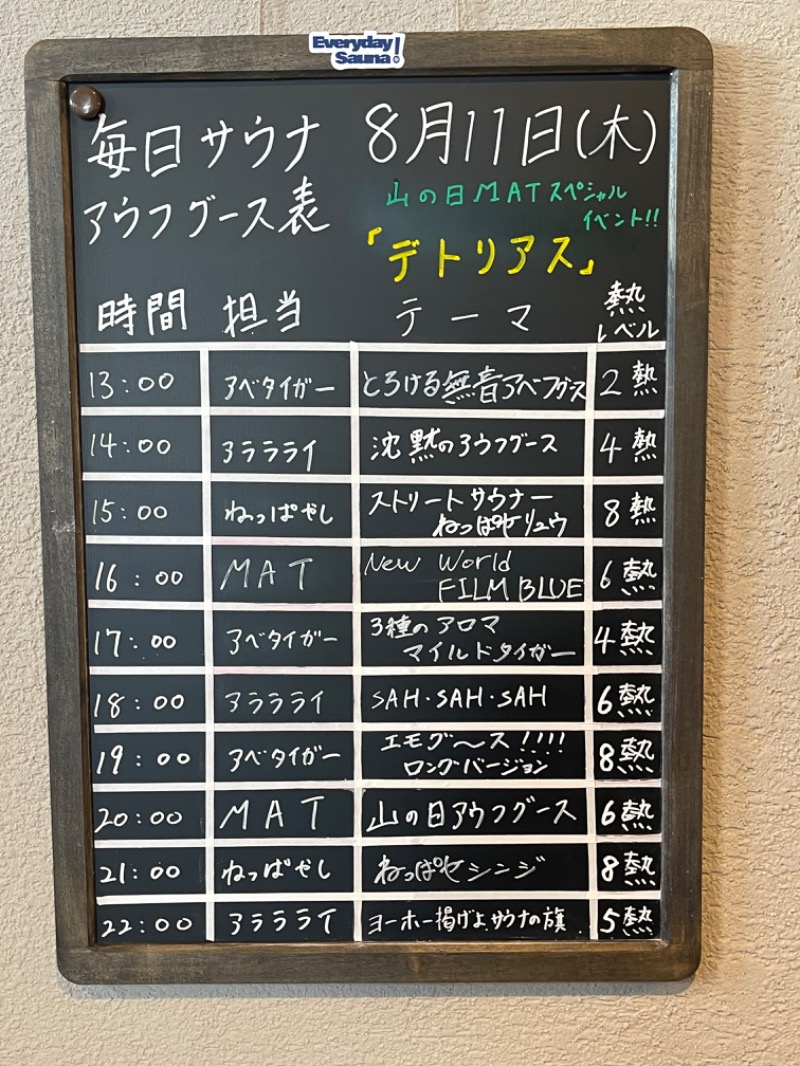 Everyday
Sauna!
毎日サウナ 8月11日(木)
アウフグース表
山の日MATスペシャル
イベント!!
「デトリアス」
時間 担当 テーマ 熱レベル
13:00 アベタイガー とろける無音アベフグス 2熱
14:00 アラララライ 沈黙のアウフグース 4熱
15:00 ねっぱやし ストリートサウナー
ねっぱやリュウ 8熱
16:00 MAT New World
FILM BLUE 6熱
17:00 アベタイガー 3種のアロマ
マイルドタイガー 4熱
18:00 アラララライ SAH・SAH・SAH 6熱
19:00 アベタイガー エモグ〜ス!!!!
ロングバージョン 8熱
20:00 MAT 山の日アウフグース 6熱
21:00 ねっぱやし ねっぱやシンジ 8熱
22:00 アラララライ ヨーホー掲げよサウナの旗 5熱